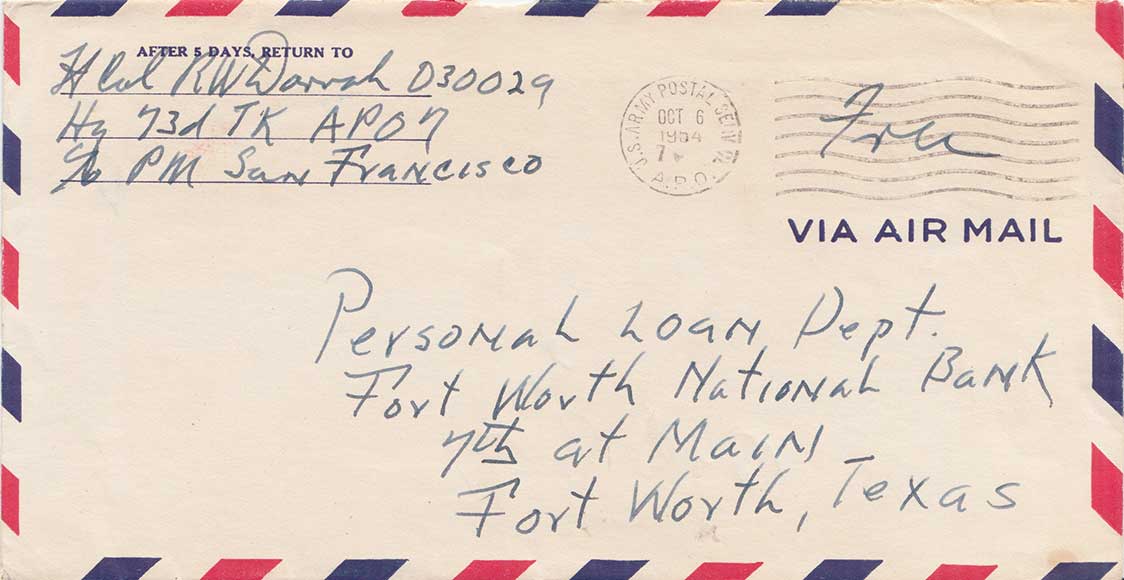 AFTER 5 DAYS, RETURN TO
Lt Col RW Darrah O30029
Hq 73d TK APO 7
c/o PM San Francisco
U.S. ARMY POSTAL SERVICE
OCT 6
1954
7
A.P.O.
Free
VIA AIR MAIL
Personal Loan Dept.
Fort Worth National Bank
7th at Main
Fort Worth, Texas